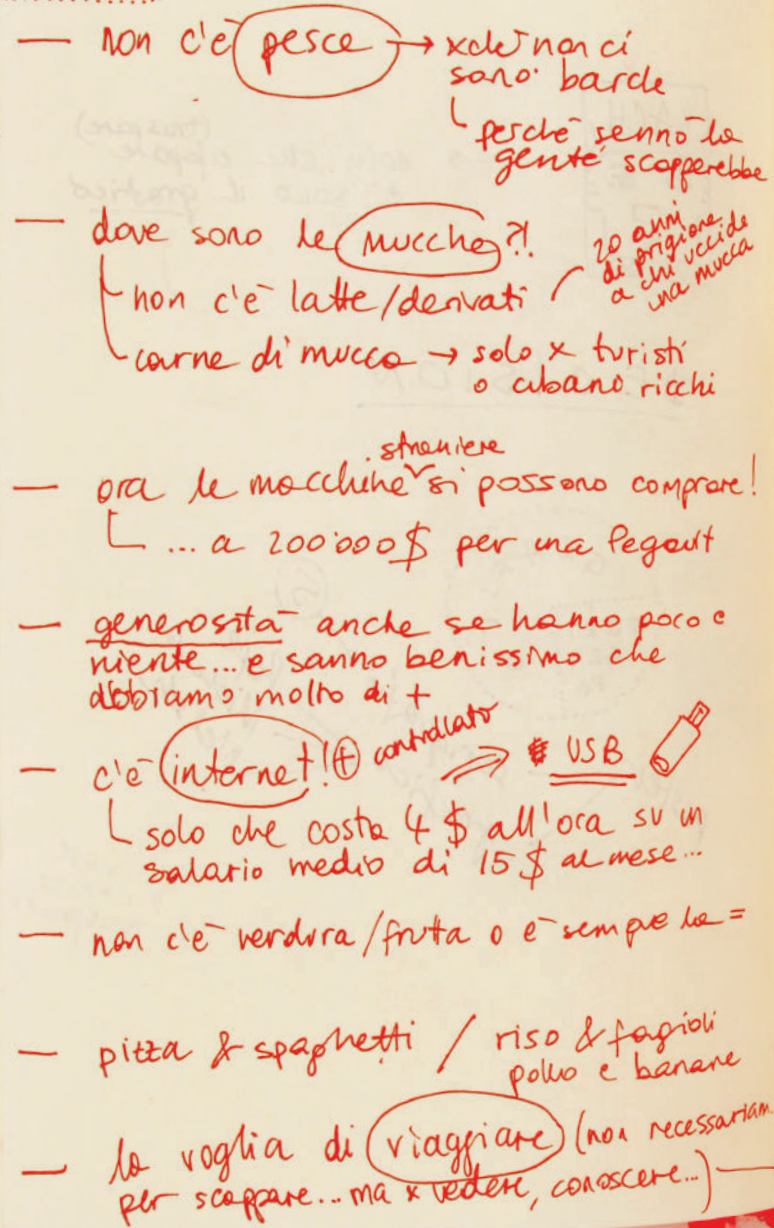 — non c'è pesce → xchè non ci
sono barche
perchè sennò la
gente scapperebbe
— dove sono le mucche?!
non c'è latte/derivati / 20 anni
di prigione
a chi uccide
una mucca
carne di mucca → solo x turisti
o cubano ricchi
— ora le macchine straniere si possono comprare!
... a 200'000$ per una Pegeout
— generosità anche se hanno poco e
niente... e sanno benissimo che
abbiamo molto di +
— c'è internet! + controllato ⇒ USB
solo che costa 4 $ all'ora su un
salario medio di 15 $ al mese...
— non c'è verdura/frutta o è sempre la =
— pizza & spaghetti / riso & fagioli
pollo e banane
— la voglia di viaggiare (non necessariam
per scappare... ma x vedere, conoscere...) —